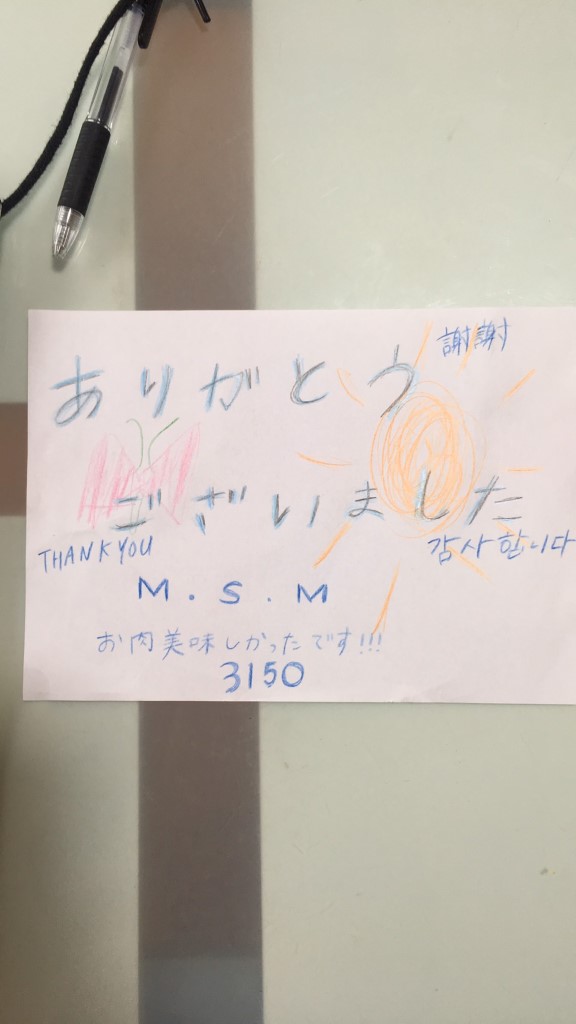 謝謝
ありがとう
ございました
THANK YOU
감사합니다
M.S.M
お肉美味しかったです!!!
3150